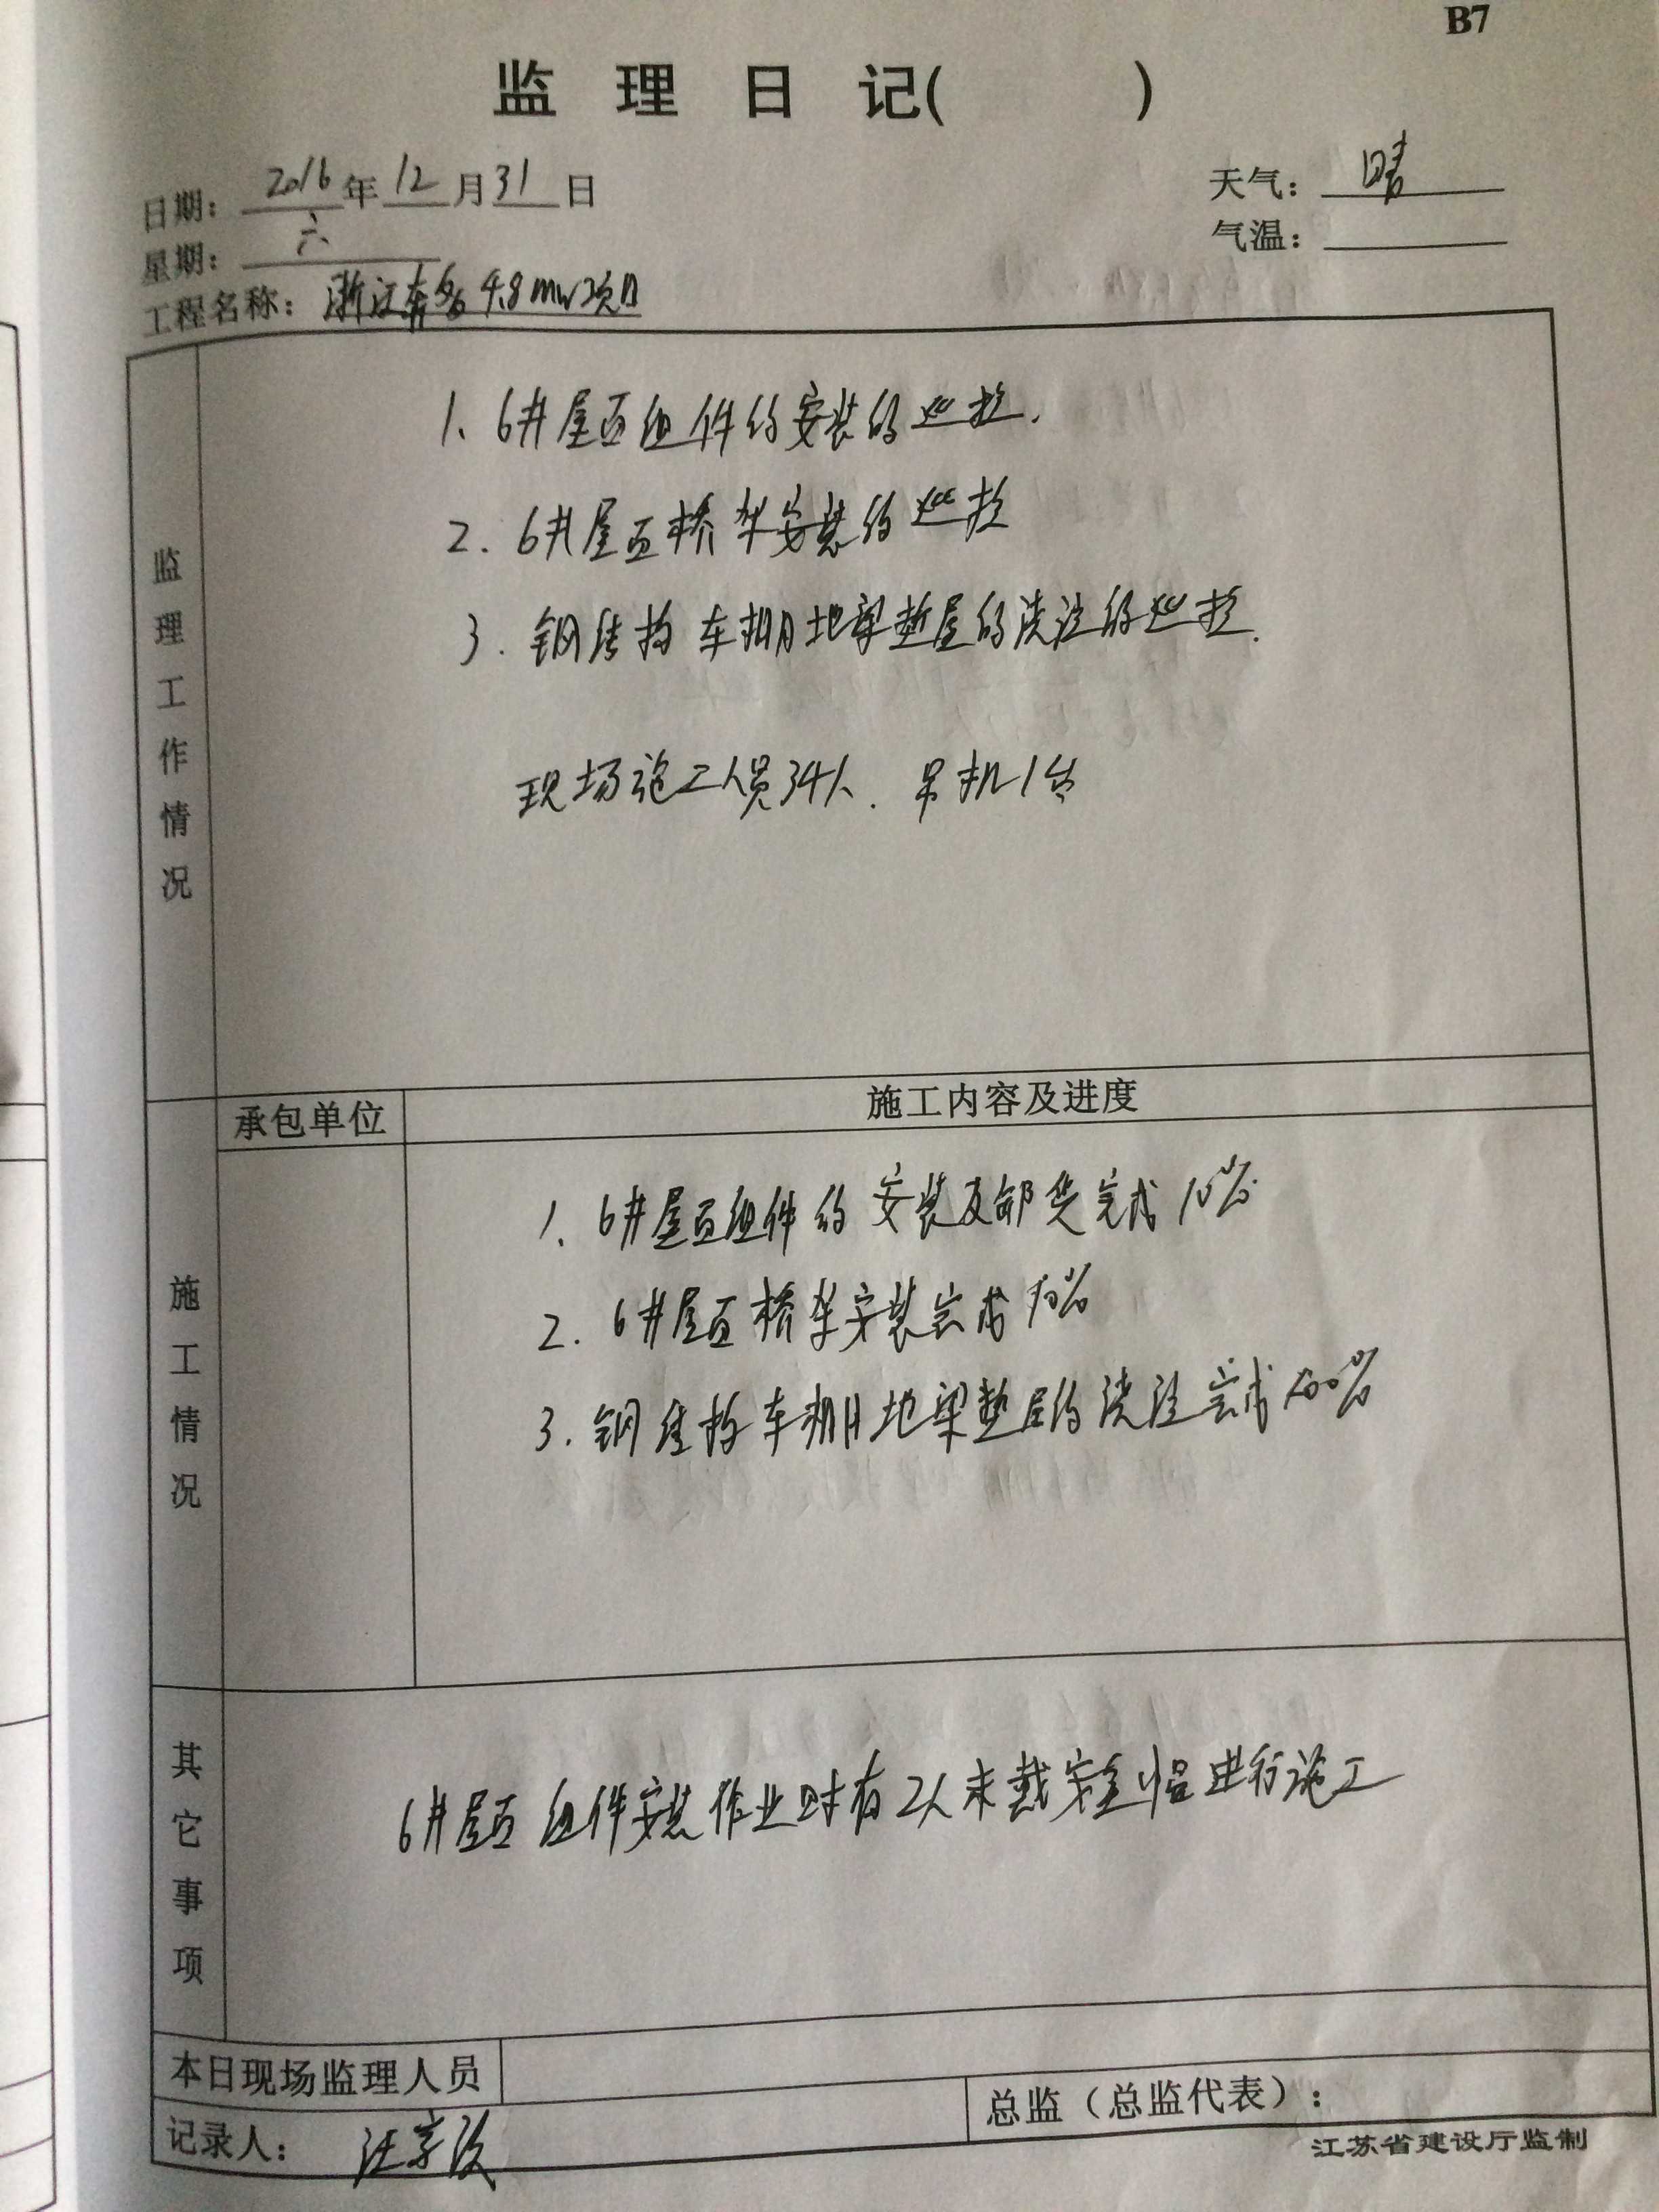 B7
监理日记( )
日期：2016年12月31日
天气：晴
星期：六
气温：
工程名称：浙江奔多4.8mw项目
监理工作情况
1、6#屋面组件的安装的巡控.
2.6#屋面桥架安装的巡控
3.钢结构车棚地梁垫层的浇注的巡控.
现场施工人员34人.吊机1台
承包单位
施工内容及进度
施工情况
1、6#屋面组件的安装及部类完成10%
2.6#屋面桥架安装完成10%
3.钢结构车棚地梁垫层的浇注完成100%
其它事项
6#屋面组件安装作业时有2人未戴安全帽进行施工
本日现场监理人员
记录人：汪
总监（总监代表）：
江苏省建设厅监制